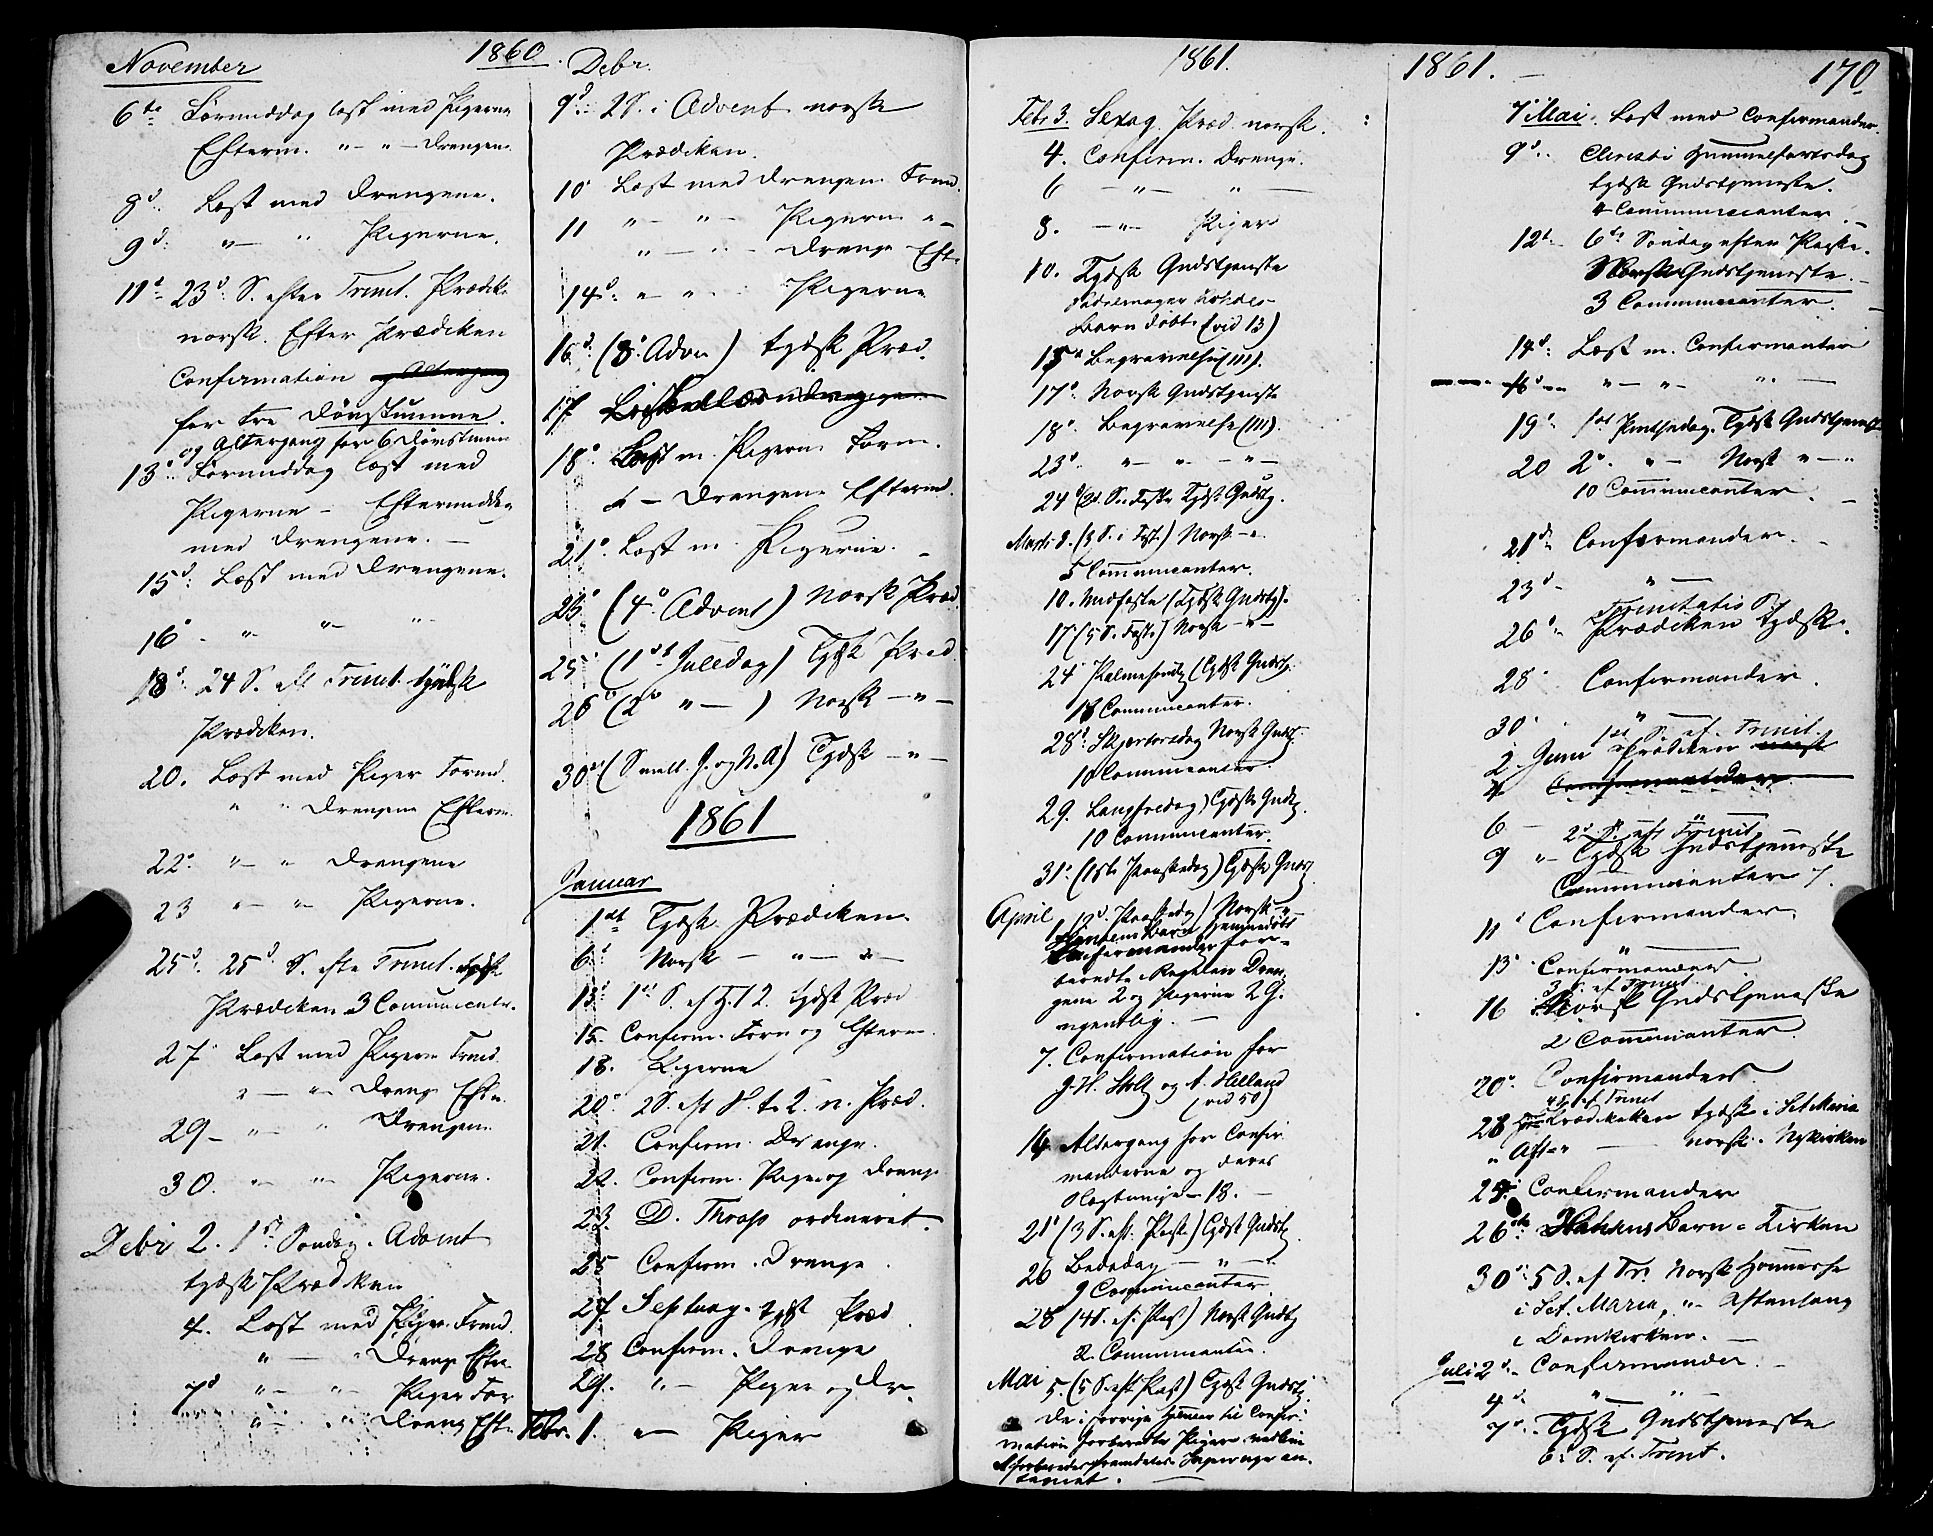 November 1860.
6te Formiddag læst med Pigerne
Efterm. " - " - Drengene
8d: Læst med Drengene.
9d: " - " Pigerne.
11te 23d: S. efter Trinit. Prædike
norsk. Efter Prædiken
Confirmation og Altergang
for tre Døvstumme.
og Altergang for 6 Døvstumme
13d: Formiddag læst med
Pigerne - Eftermiddag
med Drengene. -
15d: Læst med Drengene.
16d - " - " - " -
18d: 24 S. eft Trinit. tydsk
Prædiken.
20. Læst med Piger Formd.
" " Drengene Efterm.
22d " - " Drengene
23 " - " Pigerne.
25d: 25d S. efter Trinit. tydsk
Prædiken 3 Comunicenter.
27 Læst med Pigerne Formd.
" - " - Drenge Eftm.
29 - " - " Drengene.
30. " - " Pigerne.
Debr 2. 1ste Søndag i Advent
tydsk Prædiken
4. Læst med Pigerne Formd.
" - " Drenge Eftm
7d " - " - Piger For
" - " - Drenge Eft.
Debr.
9d: 2 S. i Advent norsk
Prædiken.
10 Læst med Drengene Formd.
11 " - " - Pigerne " -
" - " - Drenge Eft.
14d: " " - Pigerne
16d: (3d Adven) tydsk Præd.
17 Læst med Drengene
18d Læst m. Pigerne Form.
" - Drengene Efterm.
21d. Læst m. Pigerne. -
23d (4d Advent) Norsk Præd.
25 (1ste Juledag) Tydsk Præd.
26 (2de " - ) Norsk - " -
30te (S. mell. J. og N. A) Tydsk - " -
1861
Januar
1ste Tydsk Prædiken
6te Norsk - " - " -
13d 1ste S. ef H. 1 2. tydsk Præd
15. Confirm. Form og Efterm.
18. Pigerne
20d 2 S. eft H. t. 2. n. Præd.
21. Confirm. Drenge.
22. Confirm. Piger og Drenge
23. D. Thrap ordineret.
25 Confirm. Drenge.
27. Septuag. tydsk Præd
28 Confirm. Drenge
29. " - Piger og Dr -
Febr. 1. " - Piger
1861.
Febr 3. Sexag. Præd. norsk.
4. Confirm. Drenge.
6 - " - " -
8. - " - Piger
10. Tydsk Gudstjeneste
Barn døbt. (vid 13)
15d Begravelse (III).
17d. Norsk Gudstjeneste
18d. Begravelse (III).
23d. " - " - " -
24d (2d. S. i Faste Tydsk Gudstj.
Marts 3. (3 S. i Fast.) Norsk - " -
5 Communicanter.
10. Midfaste (Tydsk Gudstj).
17 (5 S. Faste) Norsk - " -
24 Palmesøndag (Tydsk Gudstj.
18 Communicanter.
28d. Skjærtorsdag Norsk Gudstj.
10 Communicanter.
29. Langfredag) Tydsk Gudstj
10 Communicanter.
31d. (1ste Paaskedag) Tydsk Gudstj
April 1. (2d. Paaskedag) Norsk - " -
Confirmander for-
beredte i Regelen Dren-
gene 2 og Pigerne 2 G.
ugentlig. -
7. Confirmation for
J. H. Stoltz og A. Helland
(vid 50)
14 Altergang for Confir
manderne og deres
Slægtninge - 18. -
21d (3 S. eft. Paaske) Tydsk Gudstj
26 Bededag - " -
9 Communicanter
28d (4 S. eft. Pas) Norsk Gudstj
2. Communicanter.
Mai 5. (5 S. eft Pas) Tydsk Gudstj
De i forrige Halvaar til Confir-
mation forberedte Piger
1861. - 170
7d Mai. Læst med Confirmander.
9d. Christi Himmelfartsdag
tydsk Gudstjeneste.
4 Communicanter. -
12te 6te Søndag efter Paaske.
Norsk Gudstjeneste. -
3 Communicanter. -
14d. Læst m. Confirmanter
16 d - " - " - " -
19d 1ste Pintsedag. Tydsk Gudstjeneste
20 2d. " - Norsk " - "
10 Communicanter. -
21de Confirmander. -
23d - " -
Trinitatis S.
26d - Prædiken Tydsk.
28 Confirmander.
30 " -
1ste S. ef. Trinit.
2. Juni Prædiken norsk
4 Confirmander.
6 - " -
2d S. eft Trinit
9 " - Tydsk Gudstjeneste
Communicanter 7.
11d Confirmander.
13 " -
Confirmander
3 S. ef Trinit.
16 Norsk Gudstjeneste
2 Communicanter.
20d. Confirmander.
4 S. ef Trinit
23 Prædiken tydsk i Sct Maria
" Aft - " - norsk i Nykirken
25. Confirmander
26de Barn i Kirken
30d: 5 S. ef Tr. Norsk Høimesse
i Sct. Maria, " - Aftensang
i Domkirken. -
Juli 2d. - Confirmander. -
4d. " -
7d. - Tydsk Gudstjeneste
6te S. ef. Trinit.